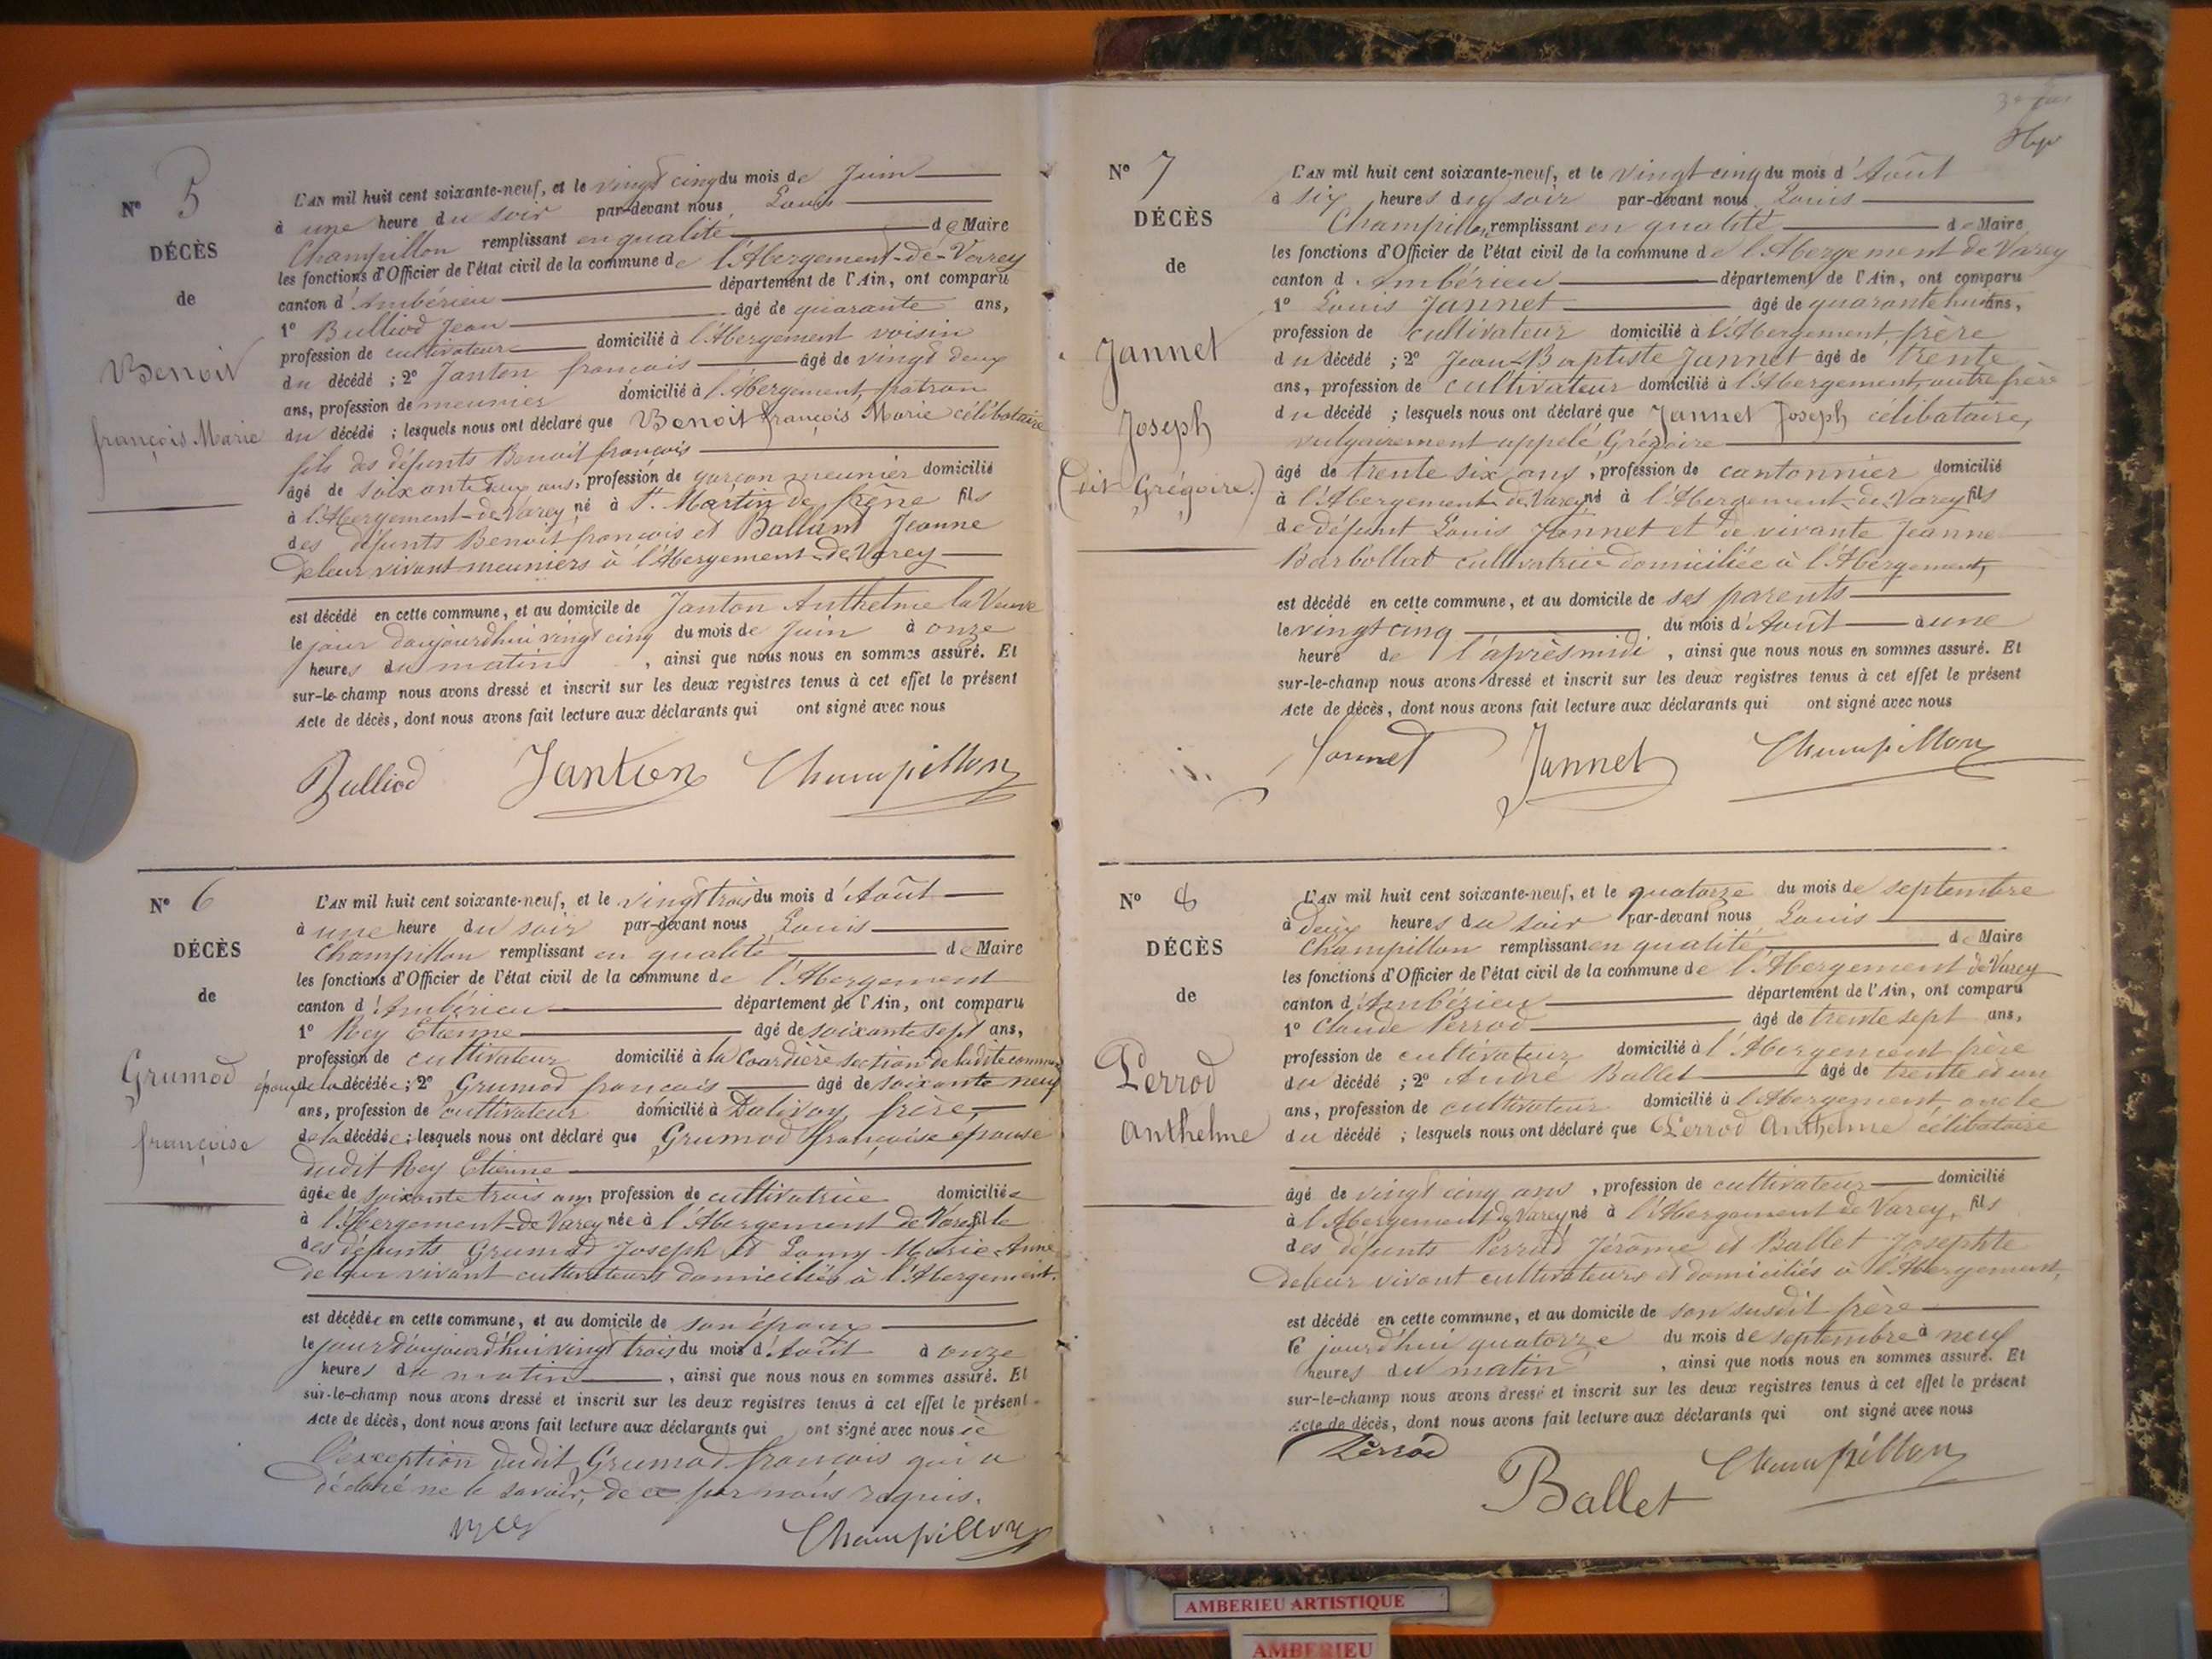 N° 5
DÉCÈS
de
Benoit
françois Marie
L'AN mil huit cent soixante-neuf, et le vingt cinq du mois de Juin
à une heure du soir par-devant nous Louis
Champillon remplissant en qualité de Maire
les fonctions d'Officier de l'état civil de la commune de l'Abergement-de-Varey
canton d'Ambérieu département de l'Ain, ont comparu
1° Bulliod Jean âgé de quarante ans,
profession de cultivateur domicilié à l'Abergement voisin
du décédé ; 2° Janton francois âgé de vingt deux
ans, profession de meunier domicilié à l'Abergement, patron
du décédé ; lesquels nous ont déclaré que Benoit françois Marie célibataire
fils des défunts Benoit françois
âgé de soixante deux ans, profession de garçon meunier domicilié
à l'Abergement-de-Varey né à St. Martin de frêne fils
des défunts Benoit francois et Ballant Jeanne
de leur vivant meuniers à l'Abergement-de-Varey
est décédé en cette commune, et au domicile de Janton Anthelme la Veuve
le jour daujourdhui vingt cinq du mois de Juin à onze
heures du matin , ainsi que nous nous en sommes assuré. Et
sur-le-champ nous avons dressé et inscrit sur les deux registres tenus à cet effet le présent
Acte de décès, dont nous avons fait lecture aux déclarants qui ont signé avec nous
Bulliod Janton Champillon
N° 6
DÉCÈS
de
Grumod
françoise
L'AN mil huit cent soixante-neuf, et le vingt trois du mois d'Août
à une heure du soir par-devant nous Louis
Champillon remplissant en qualité de Maire
les fonctions d'Officier de l'état civil de la commune de l'Abergement
canton d'Ambérieu département de l'Ain, ont comparu
1° Rey Etienne âgé de soixante sept ans,
profession de cultivateur domicilié à la Coardière section de ladite commune
époux de la décédée ; 2° Grumod francois âgé de soixante neuf
ans, profession de cultivateur domicilié à Dalivoy, frère
de la décédée ; lesquels nous ont déclaré que Grumod françoise épouse
dudit Rey Etienne
âgée de soixante trois ans, profession de cultivatrice domiciliée
à l'Abergement-de-Varey née à l'Abergement de Varey fille
des défunts Grumod Joseph et Lomy Marie-Anne
de leur vivant cultivateurs domiciliés à l'Abergement.
est décédée en cette commune, et au domicile de son époux
le jour d'aujourd'hui vingt trois du mois d'Août à onze
heures du matin , ainsi que nous nous en sommes assuré. Et
sur-le-champ nous avons dressé et inscrit sur les deux registres tenus à cet effet le présent
Acte de décès, dont nous avons fait lecture aux déclarants qui ont signé avec nous à
l'exception dudit Grumod francois qui a
déclaré ne le savoir, de ce par nous requis.
Champillon
N° 7
DÉCÈS
de
Jannet
Joseph
(dit Grégoire)
L'AN mil huit cent soixante-neuf, et le vingt cinq du mois d'Août
à six heures du soir par-devant nous Louis
Champillon remplissant en qualité de Maire
les fonctions d'Officier de l'état civil de la commune de l'Abergement de Varey
canton d'Ambérieu département de l'Ain, ont comparu
1° Louis Jannet âgé de quarante huit ans,
profession de cultivateur domicilié à l'Abergement, frère
du décédé ; 2° Jean-Baptiste Jannet âgé de trente
ans, profession de cultivateur domicilié à l'Abergement, autre frère
du décédé ; lesquels nous ont déclaré que Jannet Joseph célibataire,
vulgairement appelé Grégoire
âgé de trente six ans, profession de cantonnier domicilié
à l'Abergement-de-Varey né à l'Abergement-de-Varey fils
de défunt Louis Jannet et de vivante Jeanne
Barbollat cultivatrice domiciliée à l'Abergement,
est décédé en cette commune, et au domicile de ses parents
le vingt cinq du mois d'Août à une
heure de l'après midi , ainsi que nous nous en sommes assuré. Et
sur-le-champ nous avons dressé et inscrit sur les deux registres tenus à cet effet le présent
Acte de décès, dont nous avons fait lecture aux déclarants qui ont signé avec nous
Jannet Jannet Champillon
N° 8
DÉCÈS
de
Perrod
Anthelme
L'AN mil huit cent soixante-neuf, et le quatorze du mois de septembre
à deux heures du soir par-devant nous Louis
Champillon remplissant en qualité de Maire
les fonctions d'Officier de l'état civil de la commune de l'Abergement de Varey
canton d'Ambérieu département de l'Ain, ont comparu
1° Claude Perrod âgé de trente sept ans,
profession de cultivateur domicilié à l'Abergement frère
du décédé ; 2° André Ballet âgé de trente et un
ans, profession de cultivateur domicilié à l'Abergement oncle
du décédé ; lesquels nous ont déclaré que Perrod Anthelme célibataire
âgé de vingt cinq ans , profession de cultivateur domicilié
à l'Abergement de Varey né à l'Abergement de Varey, fils
des défunts Perrod Jérôme et Ballet Josephte
de leur vivant cultivateurs et domiciliés à l'Abergement,
est décédé en cette commune, et au domicile de son susdit frère
le jourd'hui quatorze du mois de septembre à neuf
heures du matin , ainsi que nous nous en sommes assuré. Et
sur-le-champ nous avons dressé et inscrit sur les deux registres tenus à cet effet le présent
Acte de décès, dont nous avons fait lecture aux déclarants qui ont signé avec nous
Perrod Ballet Champillon
AMBERIEU ARTISTIQUE
AMBERIEU